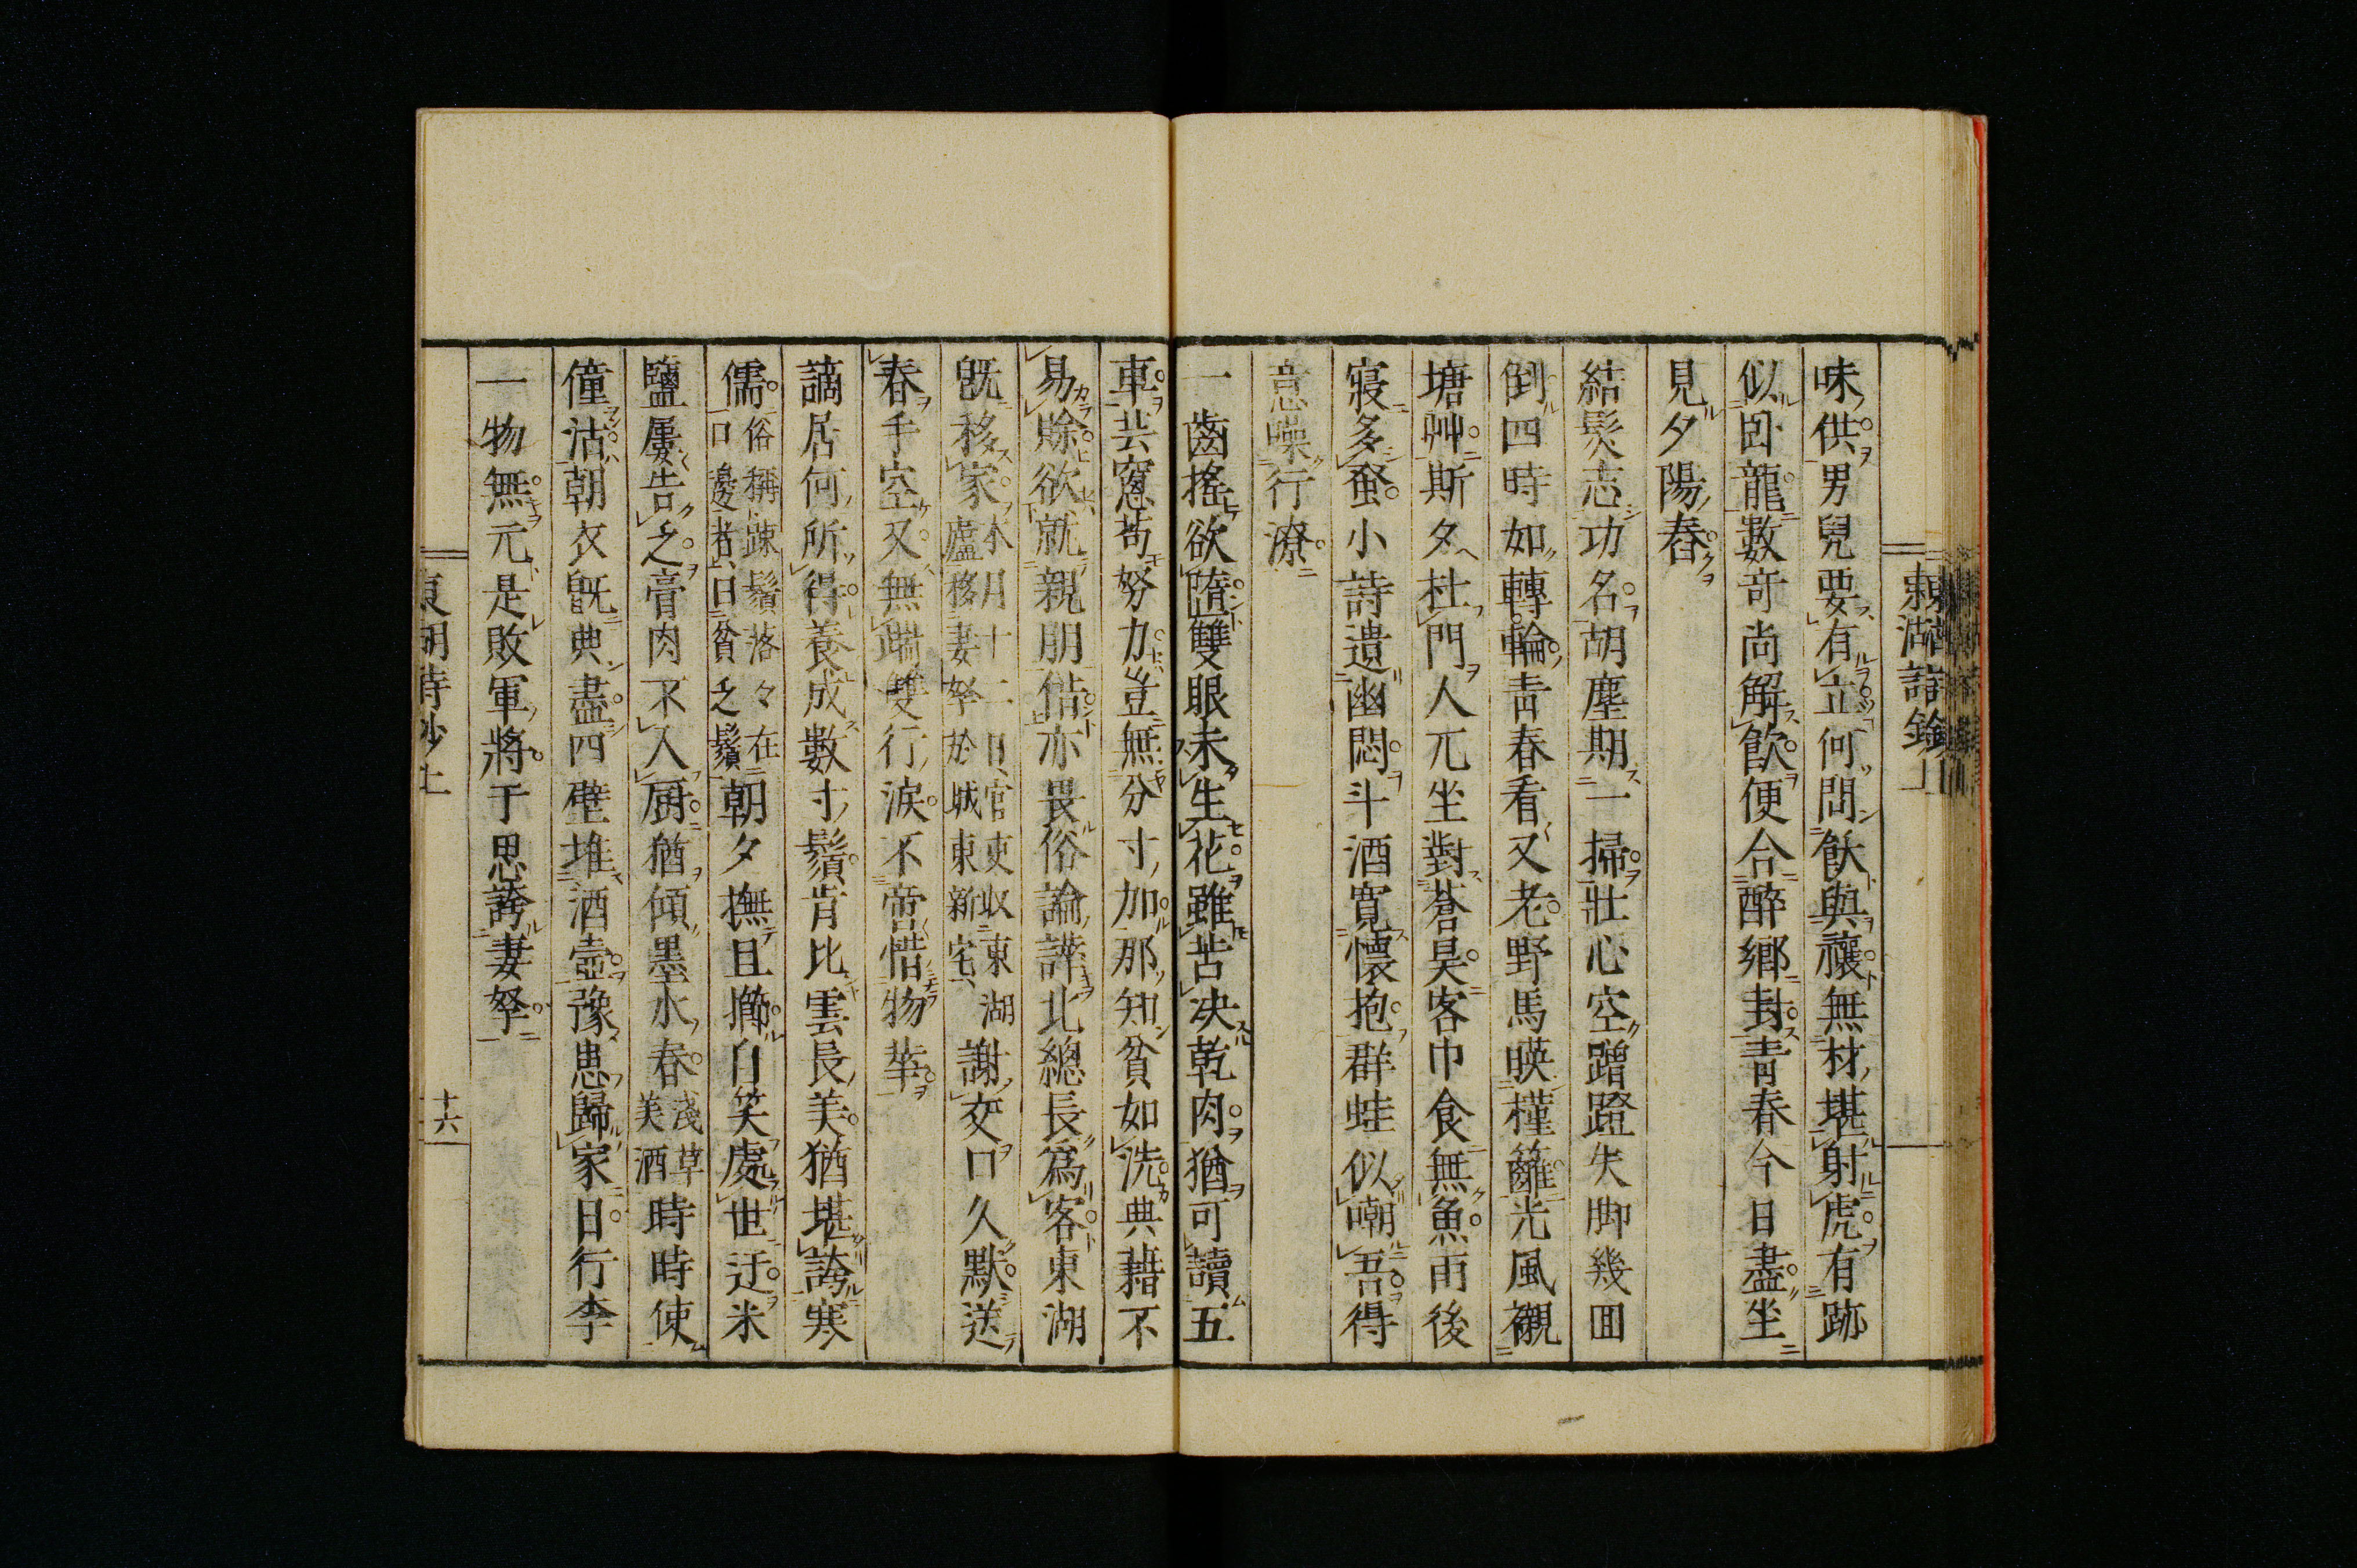 東湖詩鈔上
味供男兒要有立何問飫與禳無材堪射虎有跡
似臥龍數奇尚解飮便合醉鄕封靑春今日盡坐
見夕陽春
結髮志功名胡塵期一掃壯心空蹭蹬失脚幾回
倒四時如轉輪靑春看又老野馬暎槿籬光風襯
塘艸斯夕杜門人兀坐對蒼昊客巾食無魚雨後
寢多蚤小詩遺幽悶斗酒寬懷抱群蛙似嘲吾得
意噪行潦
一齒搖欲墮雙眼未生花雖苦决乾肉猶可讀五
車芸窻苟努力豈無分寸加那知貧如洗典藉不
易賒欲就親朋偕亦畏俗論譁北總長爲客東湖
旣移家
本月十二日官吏收東湖
廬移妻孥於城東新宅
謝交口久默送
春手空叉無端雙行淚不啻惜物華
謫居何所得養成數寸鬚肯比雲長美猶堪誇寒
儒
俗稱踈鬚落々在
口邊者曰貧乏鬚
朝夕撫且擲自笑處世迂米
鹽屢告乏膏肉不入厨猶傾墨水春
淺草
美酒
時時使
僮沽朝衣旣典盡四壁堆酒壺豫患歸家日行李
一物無元是敗軍將于思誇妻孥
東湖詩鈔上
十六